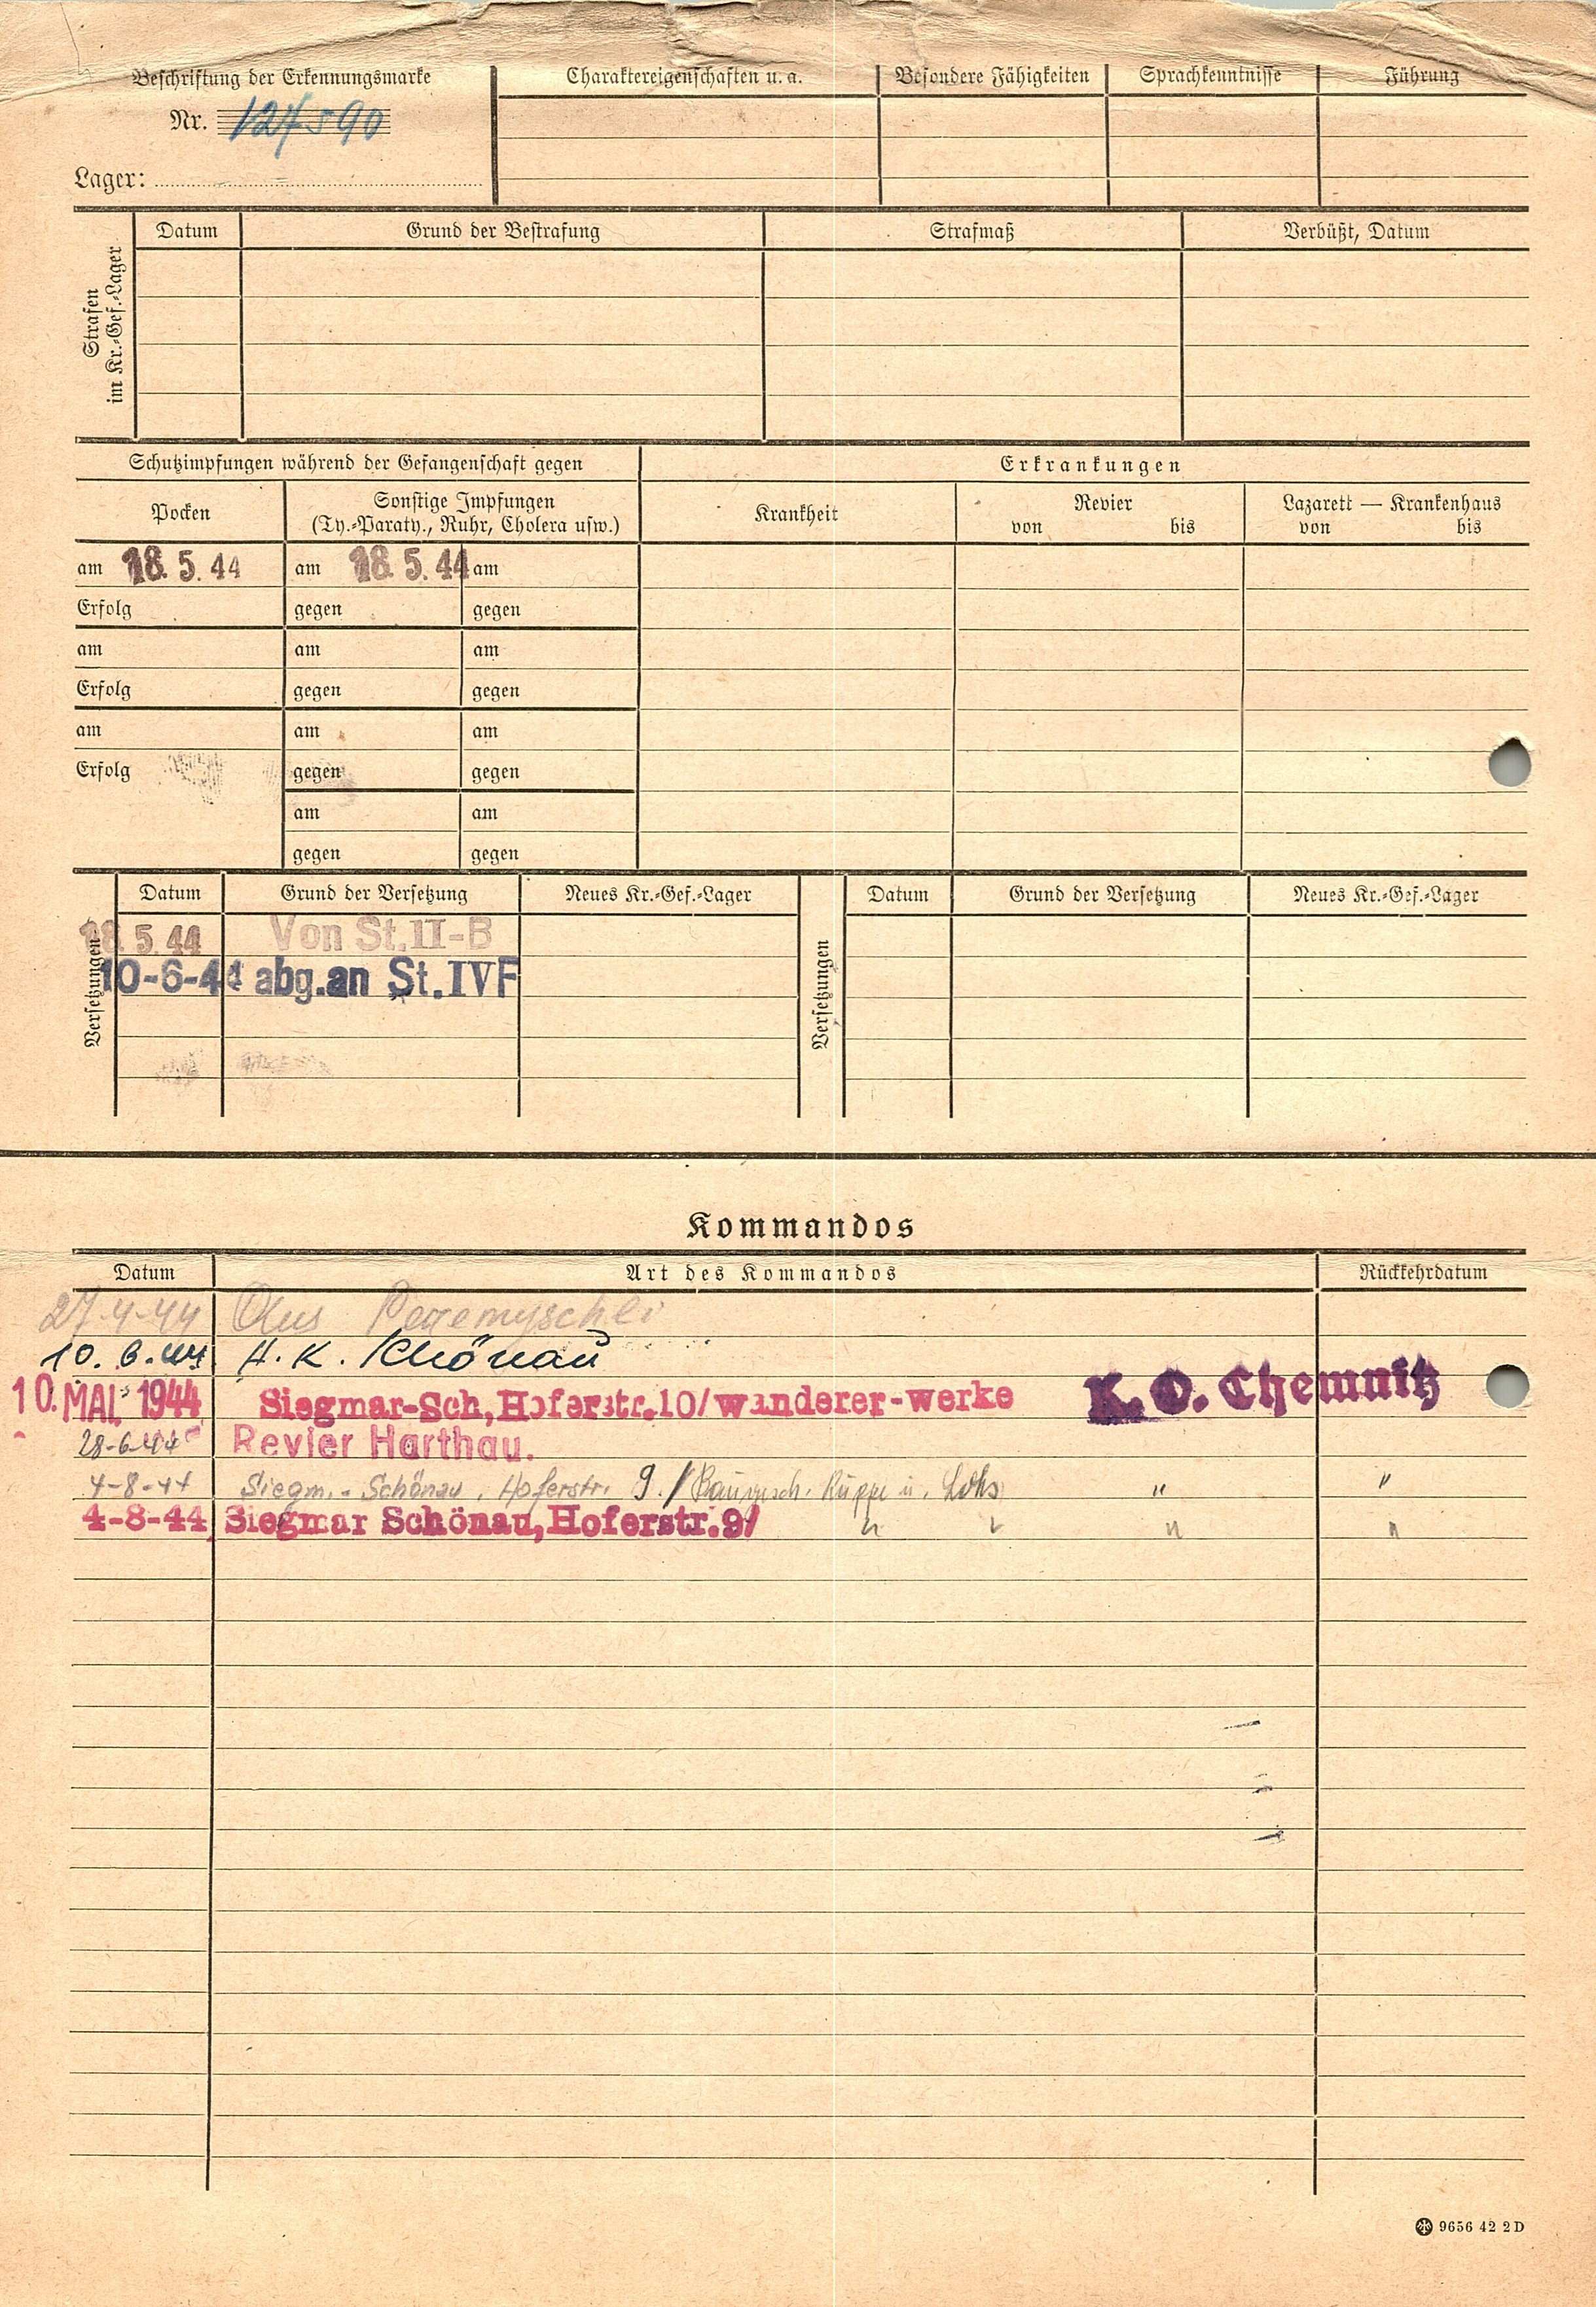 Beschriftung der Erkennungsmarke
Nr. 127590
Lager:
Charaktereigenschaften u. a.
Besondere Fähigkeiten
Sprachkenntnisse
Führung
Strafen
im Kr.-Gef.-Lager
Datum
Grund der Bestrafung
Strafmaß
Verbüßt, Datum
Schutzimpfungen während der Gefangenschaft gegen
Erkrankungen
Pocken
Sonstige Impfungen
(Ty.-Paraty., Ruhr, Cholera usw.)
Krankheit
Revier
von bis
Lazarett — Krankenhaus
von bis
am 18. 5. 44 am 18. 5. 44 am
Erfolg gegen gegen
am am am
Erfolg gegen gegen
am am am
Erfolg gegen gegen
am am
gegen gegen
Versetzungen
Datum Grund der Versetzung Neues Kr.-Gef.-Lager
18. 5. 44 Von St. II-B
10-6-44 abg. an St. IVF
Versetzungen
Datum Grund der Versetzung Neues Kr.-Gef.-Lager
Kommandos
Datum Art des Kommandos Rückkehrdatum
27-4-44 Aus
10. 6. 44 A. K. Schönau
10. MAI 1944 Siegmar-Sch, Hoferstr. 10/ wanderer-werke K. O. Chemnitz
28-6-44 Revier Harthau.
4-8-44 Siegm.-Schönau, Hoferstr. 9. / Baugesch. " "
4-8-44 Siegmar Schönau, Hoferstr. 9/ " " " "
9656 42 2 D